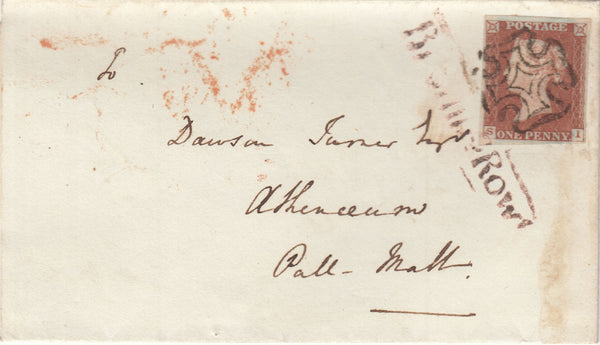 POSTAGE
S ONE PENNY. I
To
Dawson Turner Esqr
Athenaeum
Pall-Mall.
Row